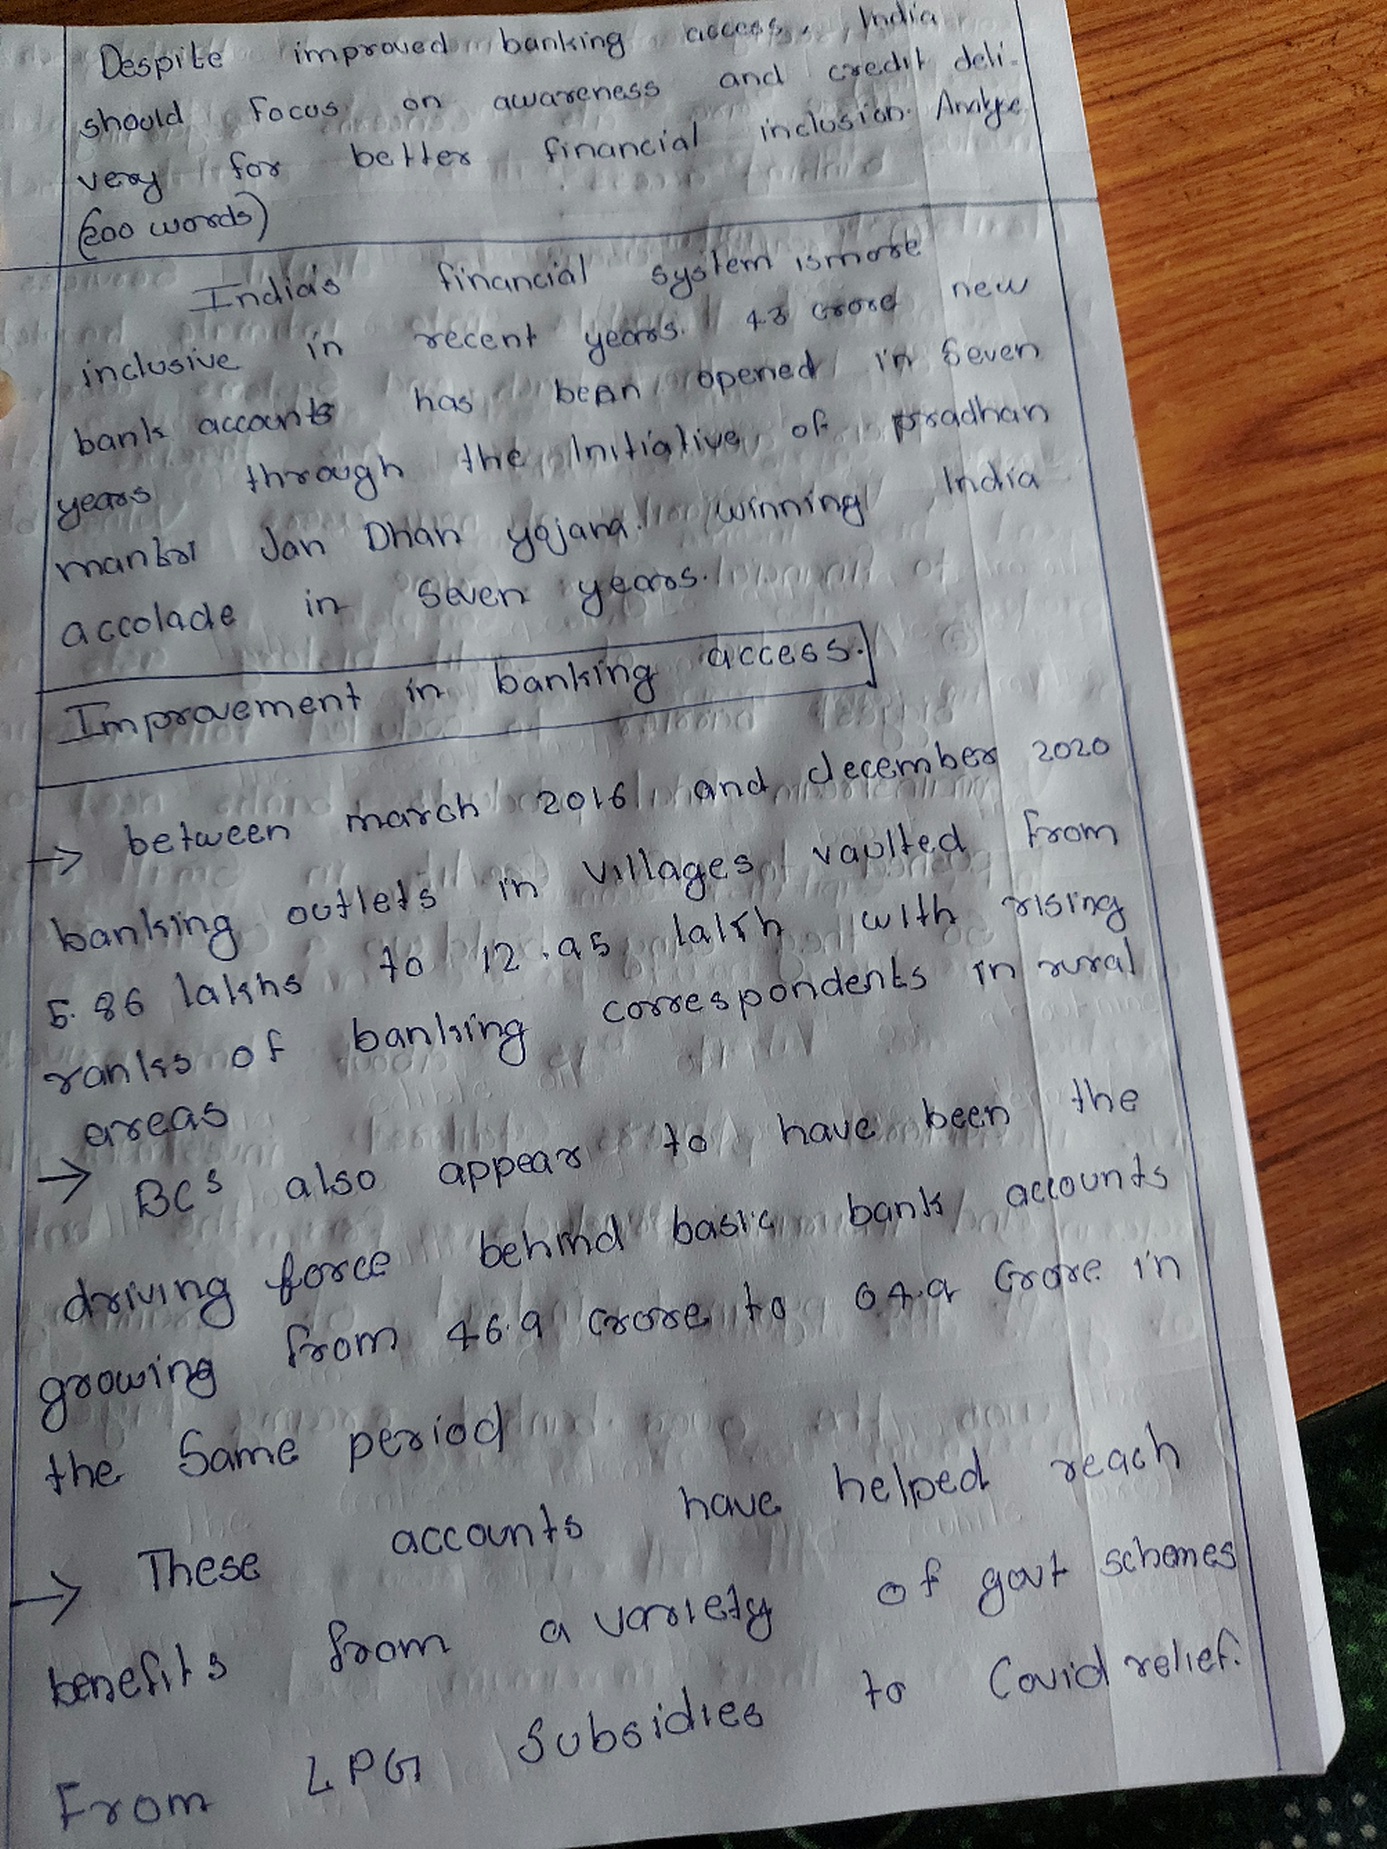 Despite improved banking access, India
should focus on awareness and credit deli-
very for better financial inclusion. Analyse
(200 words)
India's financial system is more
inclusive in recent years. 43 crore new
bank accounts has been opened in seven
years through the Initiative of pradhan
mantri Jan Dhan yojana. winning India
accolade in seven years.
Improvement in banking access.
→ between march 2016 and december 2020
banking outlets in villages vaulted from
5.86 lakhs to 12.95 lakh with rising
ranks of banking correspondents in rural
areas
→ BCs also appear to have been the
driving force behind basic bank accounts
growing from 46.9 crore to 64.9 Crore in
the same period
→ These accounts have helped reach
benefits from a variety of govt schemes
From LPG Subsidies to Covid relief.